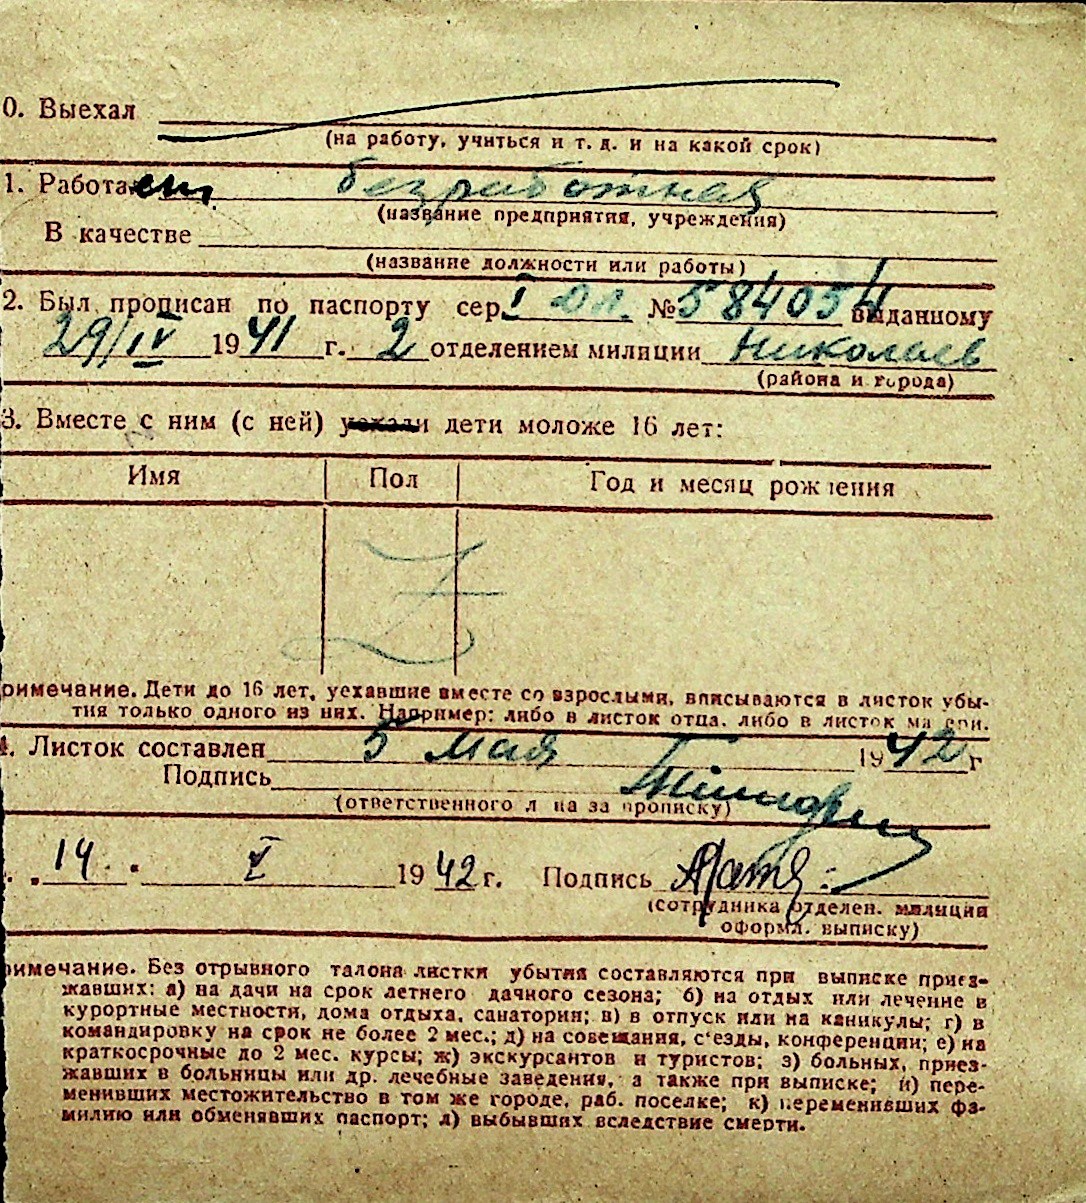 0. Выехал
(на работу, учиться и т. д. и на какой срок)
1. Работает безработная
(название предприятия, учреждения)
В качестве
(название должности или работы)
2. Был прописан по паспорту сер. I ОЛ. № 584054 выданному
29/IV 1941 г. 2 отделением милиции Николаев
(района и города)
3. Вместе с ним (с ней) уехали дети моложе 16 лет:
Имя Пол Год и месяц рождения
римечание. Дети до 16 лет, уехавшие вместе со взрослыми, вписываются в листок убы-
тия только одного из них. Например: либо в листок отца, либо в листок матери.
4. Листок составлен 5 мая 1942 г
Подпись
(ответственного лица за прописку)
14. V 1942 г. Подпись
(сотрудника отделен. милиции
оформл. выписку)
римечание. Без отрывного талона листки убытия составляются при выписке приез-
жавших: а) на дачи на срок летнего дачного сезона; б) на отдых или лечение в
курортные местности, дома отдыха, санатории; в) в отпуск или на каникулы; г) в
командировку на срок не более 2 мес.; д) на совещания, с'езды, конференции; е) на
краткосрочные до 2 мес. курсы; ж) экскурсантов и туристов; з) больных, приез-
жавших в больницы или др. лечебные заведения, а также при выписке; и) пере-
менивших местожительство в том же городе, раб. поселке; к) переменивших фа-
милию или обменявших паспорт; л) выбывших вследствие смерти.